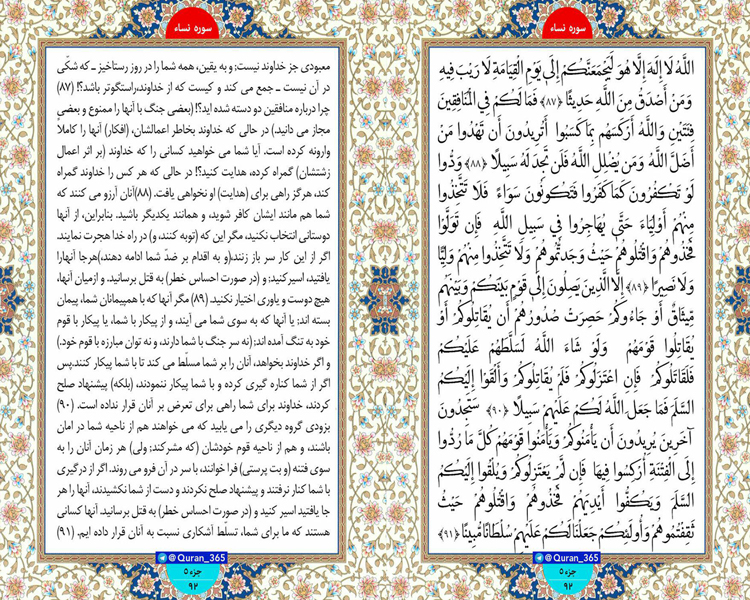 سوره نساء
اللَّهُ لَا إِلَهَ إِلَّا هُوَ لَيَجْمَعَنَّكُمْ إِلَى يَوْمِ الْقِيَامَةِ لَا رَيْبَ فِيهِ
وَمَنْ أَصْدَقُ مِنَ اللَّهِ حَدِيثًا ﴿٨٧﴾ فَمَا لَكُمْ فِي الْمُنَافِقِينَ
فِئَتَيْنِ وَاللَّهُ أَرْكَسَهُمْ بِمَا كَسَبُوا أَتُرِيدُونَ أَنْ تَهْدُوا مَنْ
أَضَلَّ اللَّهُ وَمَنْ يُضْلِلِ اللَّهُ فَلَنْ تَجِدَ لَهُ سَبِيلًا ﴿٨٨﴾ وَدُّوا
لَوْ تَكْفُرُونَ كَمَا كَفَرُوا فَتَكُونُونَ سَوَاءً فَلَا تَتَّخِذُوا
مِنْهُمْ أَوْلِيَاءَ حَتَّى يُهَاجِرُوا فِي سَبِيلِ اللَّهِ فَإِنْ تَوَلَّوْا
فَخُذُوهُمْ وَاقْتُلُوهُمْ حَيْثُ وَجَدْتُمُوهُمْ وَلَا تَتَّخِذُوا مِنْهُمْ وَلِيًّا
وَلَا نَصِيرًا ﴿٨٩﴾ إِلَّا الَّذِينَ يَصِلُونَ إِلَى قَوْمٍ بَيْنَكُمْ وَبَيْنَهُمْ
مِيثَاقٌ أَوْ جَاءُوكُمْ حَصِرَتْ صُدُورُهُمْ أَنْ يُقَاتِلُوكُمْ أَوْ
يُقَاتِلُوا قَوْمَهُمْ وَلَوْ شَاءَ اللَّهُ لَسَلَّطَهُمْ عَلَيْكُمْ
فَلَقَاتَلُوكُمْ فَإِنِ اعْتَزَلُوكُمْ فَلَمْ يُقَاتِلُوكُمْ وَأَلْقَوْا إِلَيْكُمُ
السَّلَمَ فَمَا جَعَلَ اللَّهُ لَكُمْ عَلَيْهِمْ سَبِيلًا ﴿٩٠﴾ سَتَجِدُونَ
آخَرِينَ يُرِيدُونَ أَنْ يَأْمَنُوكُمْ وَيَأْمَنُوا قَوْمَهُمْ كُلَّ مَا رُدُّوا
إِلَى الْفِتْنَةِ أُرْكِسُوا فِيهَا فَإِنْ لَمْ يَعْتَزِلُوكُمْ وَيُلْقُوا إِلَيْكُمُ
السَّلَمَ وَيَكُفُّوا أَيْدِيَهُمْ فَخُذُوهُمْ وَاقْتُلُوهُمْ حَيْثُ
ثَقِفْتُمُوهُمْ وَأُولَئِكُمْ جَعَلْنَا لَكُمْ عَلَيْهِمْ سُلْطَانًا مُبِينًا ﴿٩١﴾
@Quran_365
جزء ۵
۹۲
سوره نساء
معبودی جز خداوند نیست؛ و به یقین، همه شما را در روز رستاخیز ـ که شکّی
در آن نیست ـ جمع می کند و کیست که از خداوند، راستگوتر باشد؟! (۸۷)
چرا درباره منافقین دو دسته شده اید؟! (بعضی جنگ با آنها را ممنوع و بعضی
مجاز می دانید). در حالی که خداوند بخاطر اعمالشان، (افکار) آنها را کاملاً
وارونه کرده است. آیا شما می خواهید کسانی را که خداوند (بر اثر اعمال
زشتشان) گمراه کرده، هدایت کنید؟! در حالی که هر کس را خداوند گمراه
کند، هرگز راهی برای (هدایت) او نخواهی یافت. (۸۸)آنان آرزو می کنند که
شما هم مانند ایشان کافر شوید، و همانند یکدیگر باشید. بنابراین، از آنها
دوستانی انتخاب نکنید، مگر این که (توبه کنند، و) در راه خدا هجرت نمایند.
اگر از این کار سر باز زنند(و به اقدام بر ضدّ شما ادامه دهند)، هرجا آنهارا
یافتید، اسیر کنید؛ و (در صورت احساس خطر) به قتل برسانید. و ازمیان آنها،
هیچ دوست و یاوری اختیار نکنید. (۸۹) مگر آنها که با همپیمانان شما، پیمان
بسته اند؛ یا آنها که به سوی شما می آیند، و از پیکار با شما، یا پیکار با قوم
خود به تنگ آمده اند؛ (نه سر جنگ با شما دارند، و نه توان مبارزه با قوم خود.)
و اگر خداوند بخواهد، آنان را بر شما مسلّط می کند تا با شما پیکار کنند.پس
اگر از شما کناره گیری کرده و با شما پیکار ننمودند، (بلکه) پیشنهاد صلح
کردند، خداوند برای شما راهی برای تعرض بر آنان قرار نداده است. (۹۰)
بزودی گروه دیگری را می یابید که می خواهند هم از ناحیه شما در امان
باشند، و هم از ناحیه قوم خودشان (که مشرکند؛ ولی) هر زمان آنان را به
سوی فتنه (و بت پرستی) فرا خوانند، با سر در آن فرو می روند. اگر از درگیری
با شما کنار نرفتند و پیشنهاد صلح نکردند و دست از شما نکشیدند، آنها را هر
جا یافتید اسیر کنید و (در صورت احساس خطر) به قتل برسانید. آنها کسانی
هستند که ما برای شما، تسلّط آشکاری نسبت به آنان قرار داده ایم. (۹۱)
@Quran_365
جزء ۵
۹۲